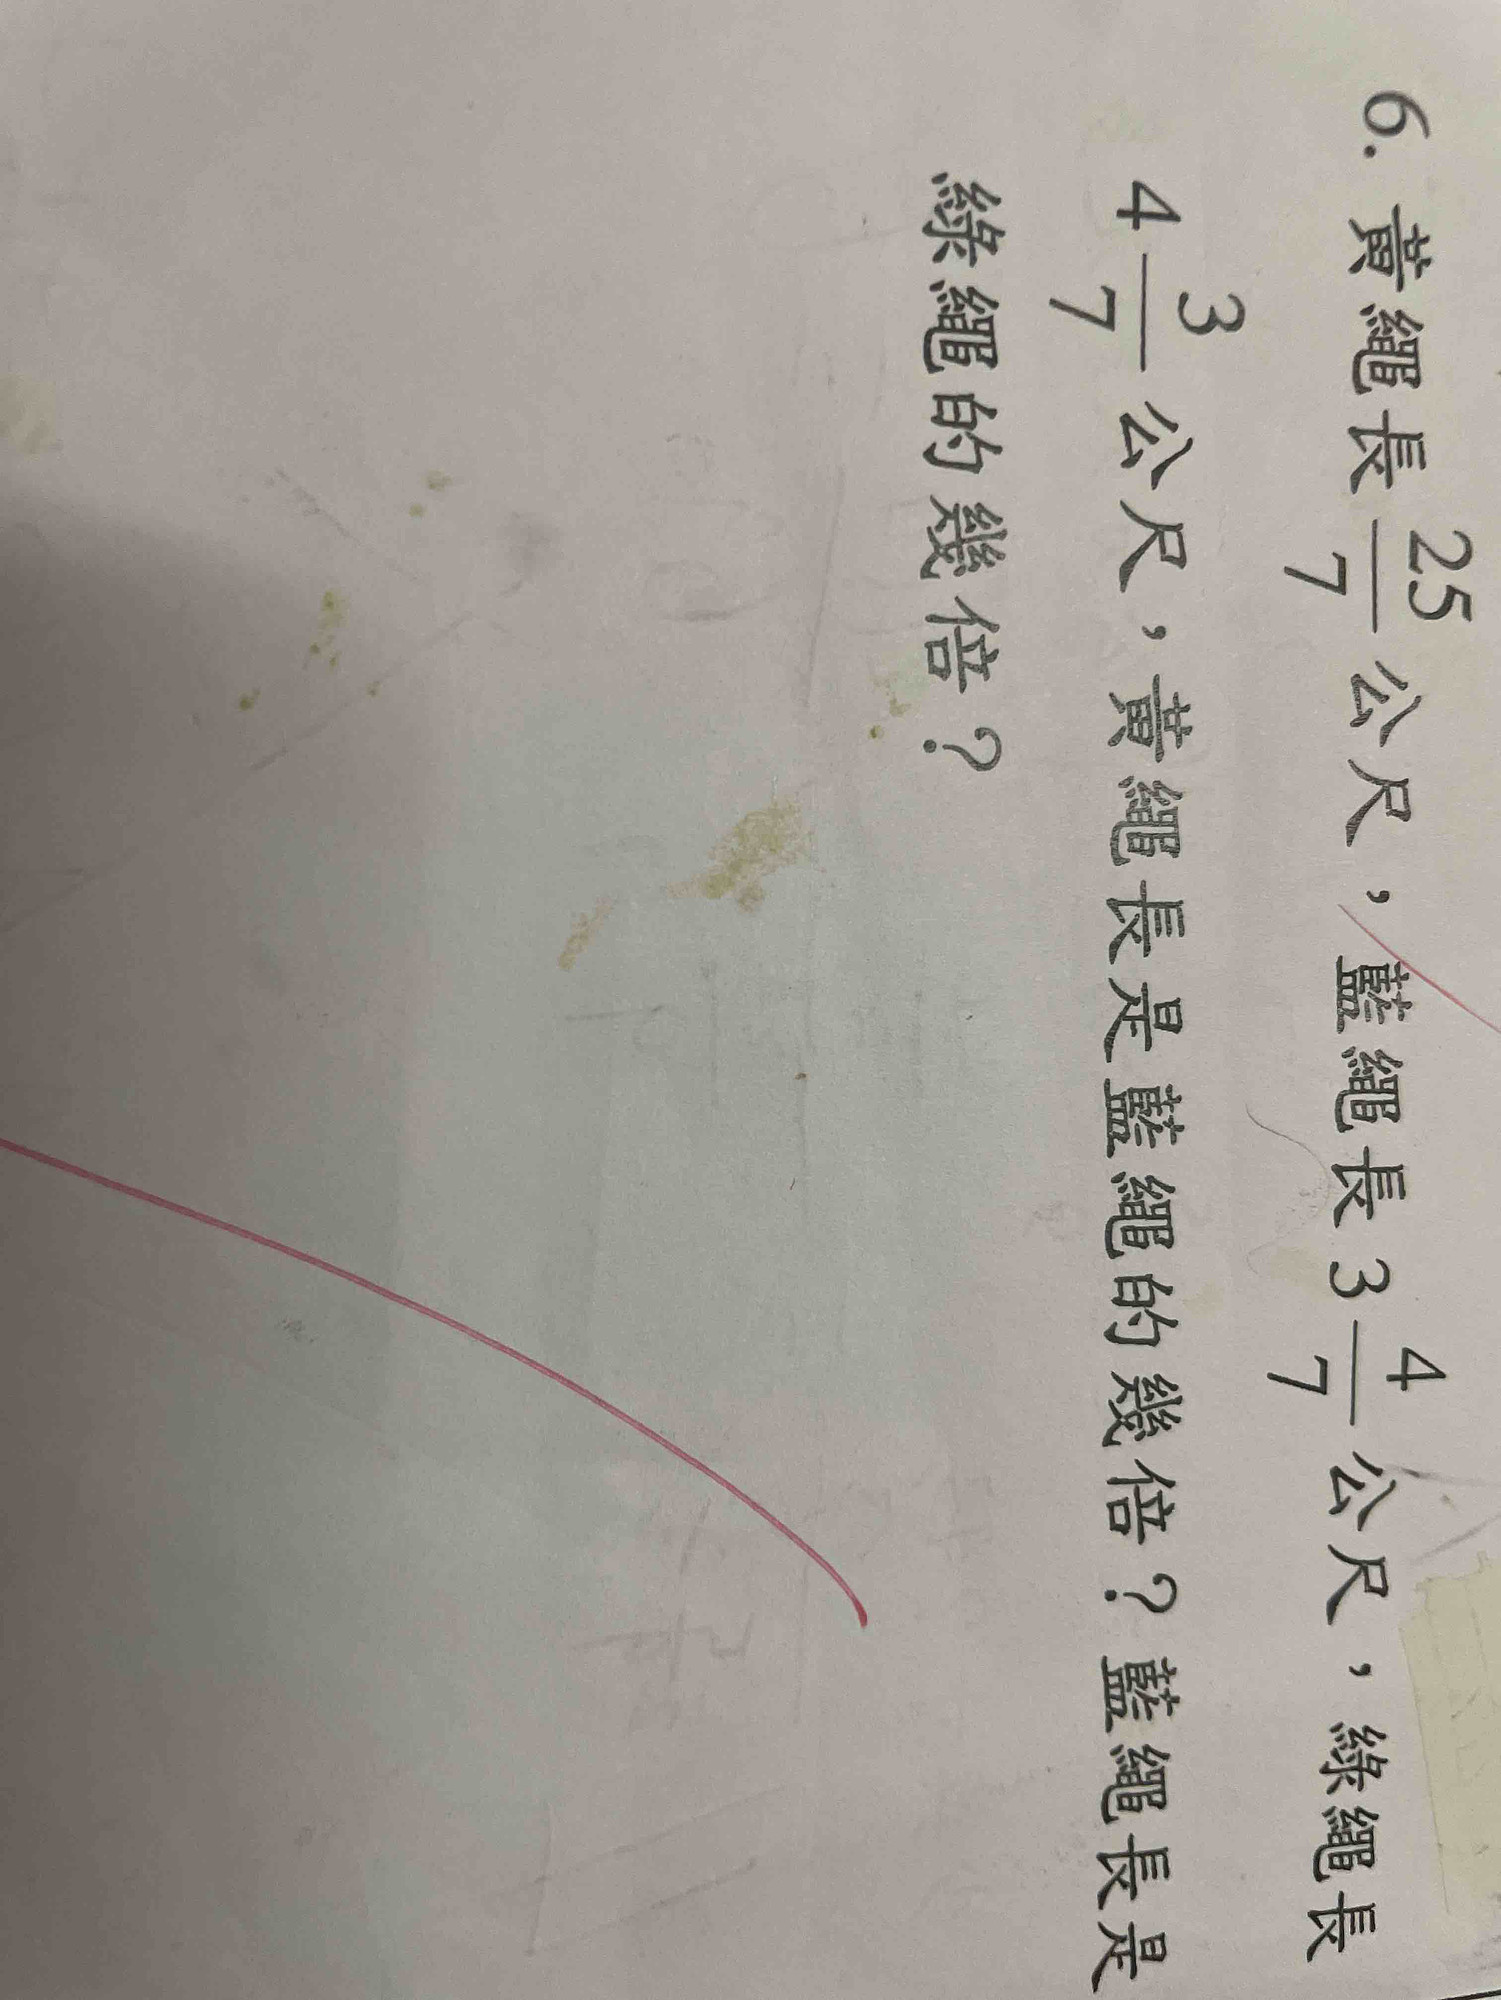 6. 黃繩長25/7公尺，藍繩長3 4/7公尺，綠繩長
4 3/7公尺，黃繩長是藍繩的幾倍？藍繩長是
綠繩的幾倍？